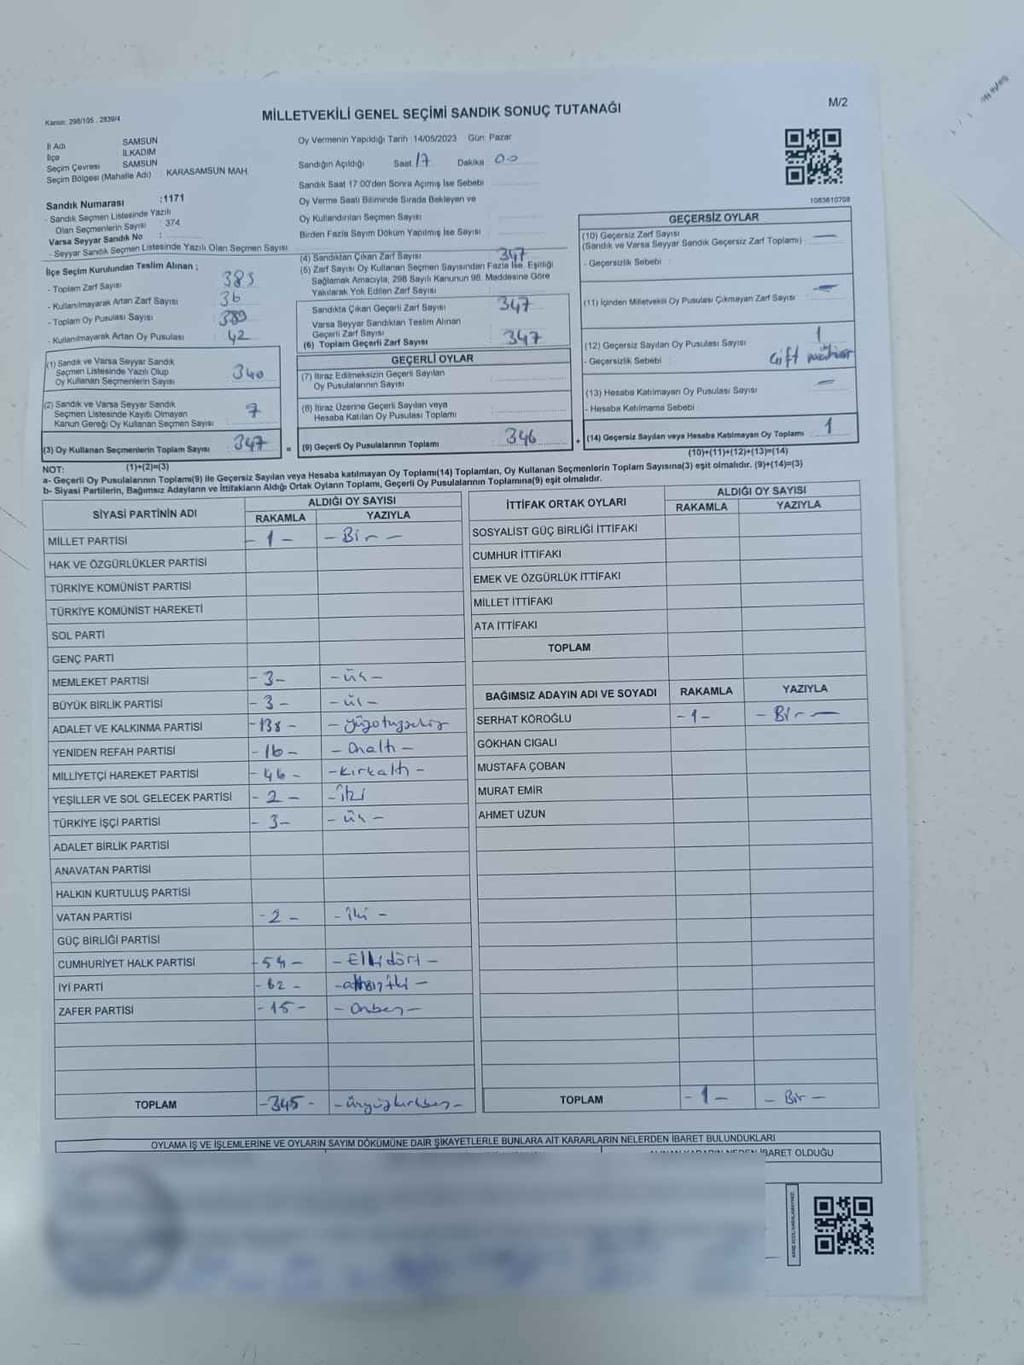 Kanun: 298/105 . 2839/4
MİLLETVEKİLİ GENEL SEÇİMİ SANDIK SONUÇ TUTANAĞI
M/2
İl Adı SAMSUN
İlçe İLKADIM
Seçim Çevresi SAMSUN
Seçim Bölgesi (Mahalle Adı) KARASAMSUN MAH.
Oy Vermenin Yapıldığı Tarih 14/05/2023 Gün: Pazar
Sandığın Açıldığı Saat 17 Dakika 00
Sandık Saat 17:00'den Sonra Açımış İse Sebebi
Oy Verme Saati Bitiminde Sırada Bekleyen ve
Oy Kullandırılan Seçmen Sayısı
Birden Fazla Sayım Döküm Yapılmış İse Sayısı
Sandık Numarası :1171
- Sandık Seçmen Listesinde Yazılı
Olan Seçmenlerin Sayısı : 374
Varsa Seyyar Sandık No :
- Seyyar Sandık Seçmen Listesinde Yazılı Olan Seçmen Sayısı
İlçe Seçim Kurulundan Teslim Alınan ;
- Toplam Zarf Sayısı 383
- Kullanılmayarak Artan Zarf Sayısı 36
- Toplam Oy Pusulası Sayısı 389
- Kullanılmayarak Artan Oy Pusulası 42
(1) Sandık ve Varsa Seyyar Sandık
Seçmen Listesinde Yazılı Olup
Oy Kullanan Seçmenlerin Sayısı 340
(2) Sandık ve Varsa Seyyar Sandık
Seçmen Listesinde Kayıtlı Olmayan
Kanun Gereği Oy Kullanan Seçmen Sayısı 7
(3) Oy Kullanan Seçmenlerin Toplam Sayısı 347 =
(4) Sandıktan Çıkan Zarf Sayısı 347
(5) Zarf Sayısı Oy Kullanan Seçmen Sayısından Fazla İse, Eşitliği
Sağlamak Amacıyla, 298 Sayılı Kanunun 98. Maddesine Göre
Yakılarak Yok Edilen Zarf Sayısı
Sandıkta Çıkan Geçerli Zarf Sayısı 347
Varsa Seyyar Sandıktan Teslim Alınan
Geçerli Zarf Sayısı
(6) Toplam Geçerli Zarf Sayısı 347
GEÇERLİ OYLAR
(7) İtiraz Edilmeksizin Geçerli Sayılan
Oy Pusulalarının Sayısı
(8) İtiraz Üzerine Geçerli Sayılan veya
Hesaba Katılan Oy Pusulası Toplamı
(9) Geçerli Oy Pusulalarının Toplamı 346 +
1083610708
GEÇERSİZ OYLAR
(10) Geçersiz Zarf Sayısı —
(Sandık ve Varsa Seyyar Sandık Geçersiz Zarf Toplamı)
- Geçersizlik Sebebi
(11) İçinden Milletvekili Oy Pusulası Çıkmayan Zarf Sayısı —
(12) Geçersiz Sayılan Oy Pusulası Sayısı 1
- Geçersizlik Sebebi Çift mühür
(13) Hesaba Katılmayan Oy Pusulası Sayısı —
- Hesaba Katılmama Sebebi
(14) Geçersiz Sayılan veya Hesaba Katılmayan Oy Toplamı 1
(1)+(2)=(3)
(10)+(11)+(12)+(13)=(14)
NOT:
a- Geçerli Oy Pusulalarının Toplamı(9) ile Geçersiz Sayılan veya Hesaba katılmayan Oy Toplamı(14) Toplamları, Oy Kullanan Seçmenlerin Toplam Sayısına(3) eşit olmalıdır. (9)+(14)=(3)
b- Siyasi Partilerin, Bağımsız Adayların ve İttifakların Aldığı Ortak Oyların Toplamı, Geçerli Oy Pusulalarının Toplamına(9) eşit olmalıdır.
SİYASİ PARTİNİN ADI ALDIĞI OY SAYISI
RAKAMLA YAZIYLA
MİLLET PARTİSİ - 1 - - Bir -
HAK VE ÖZGÜRLÜKLER PARTİSİ
TÜRKİYE KOMÜNİST PARTİSİ
TÜRKİYE KOMÜNİST HAREKETİ
SOL PARTİ
GENÇ PARTİ
MEMLEKET PARTİSİ - 3 - - üç -
BÜYÜK BİRLİK PARTİSİ - 3 - - üç -
ADALET VE KALKINMA PARTİSİ - 138 - - yüzotuzsekiz
YENİDEN REFAH PARTİSİ - 16 - - Onaltı -
MİLLİYETÇİ HAREKET PARTİSİ - 46 - - kırkaltı -
YEŞİLLER VE SOL GELECEK PARTİSİ - 2 - - iki
TÜRKİYE İŞÇİ PARTİSİ - 3 - - üç -
ADALET BİRLİK PARTİSİ
ANAVATAN PARTİSİ
HALKIN KURTULUŞ PARTİSİ
VATAN PARTİSİ - 2 - - iki -
GÜÇ BİRLİĞİ PARTİSİ
CUMHURİYET HALK PARTİSİ - 54 - - Ellidört -
İYİ PARTİ - 62 - - altmışiki -
ZAFER PARTİSİ - 15 - - Onbeş -
TOPLAM - 345 - - üçyüzkırkbeş -
İTTİFAK ORTAK OYLARI ALDIĞI OY SAYISI
RAKAMLA YAZIYLA
SOSYALİST GÜÇ BİRLİĞİ İTTİFAKI
CUMHUR İTTİFAKI
EMEK VE ÖZGÜRLÜK İTTİFAKI
MİLLET İTTİFAKI
ATA İTTİFAKI
TOPLAM
BAĞIMSIZ ADAYIN ADI VE SOYADI RAKAMLA YAZIYLA
SERHAT KÖROĞLU - 1 - - Bir -
GÖKHAN CIGALI
MUSTAFA ÇOBAN
MURAT EMİR
AHMET UZUN
TOPLAM - 1 - - Bir -
OYLAMA İŞ VE İŞLEMLERİNE VE OYLARIN SAYIM DÖKÜMÜNE DAİR ŞİKAYETLERLE BUNLARA AİT KARARLARIN NELERDEN İBARET BULUNDUKLARI
İBARET OLDUĞU